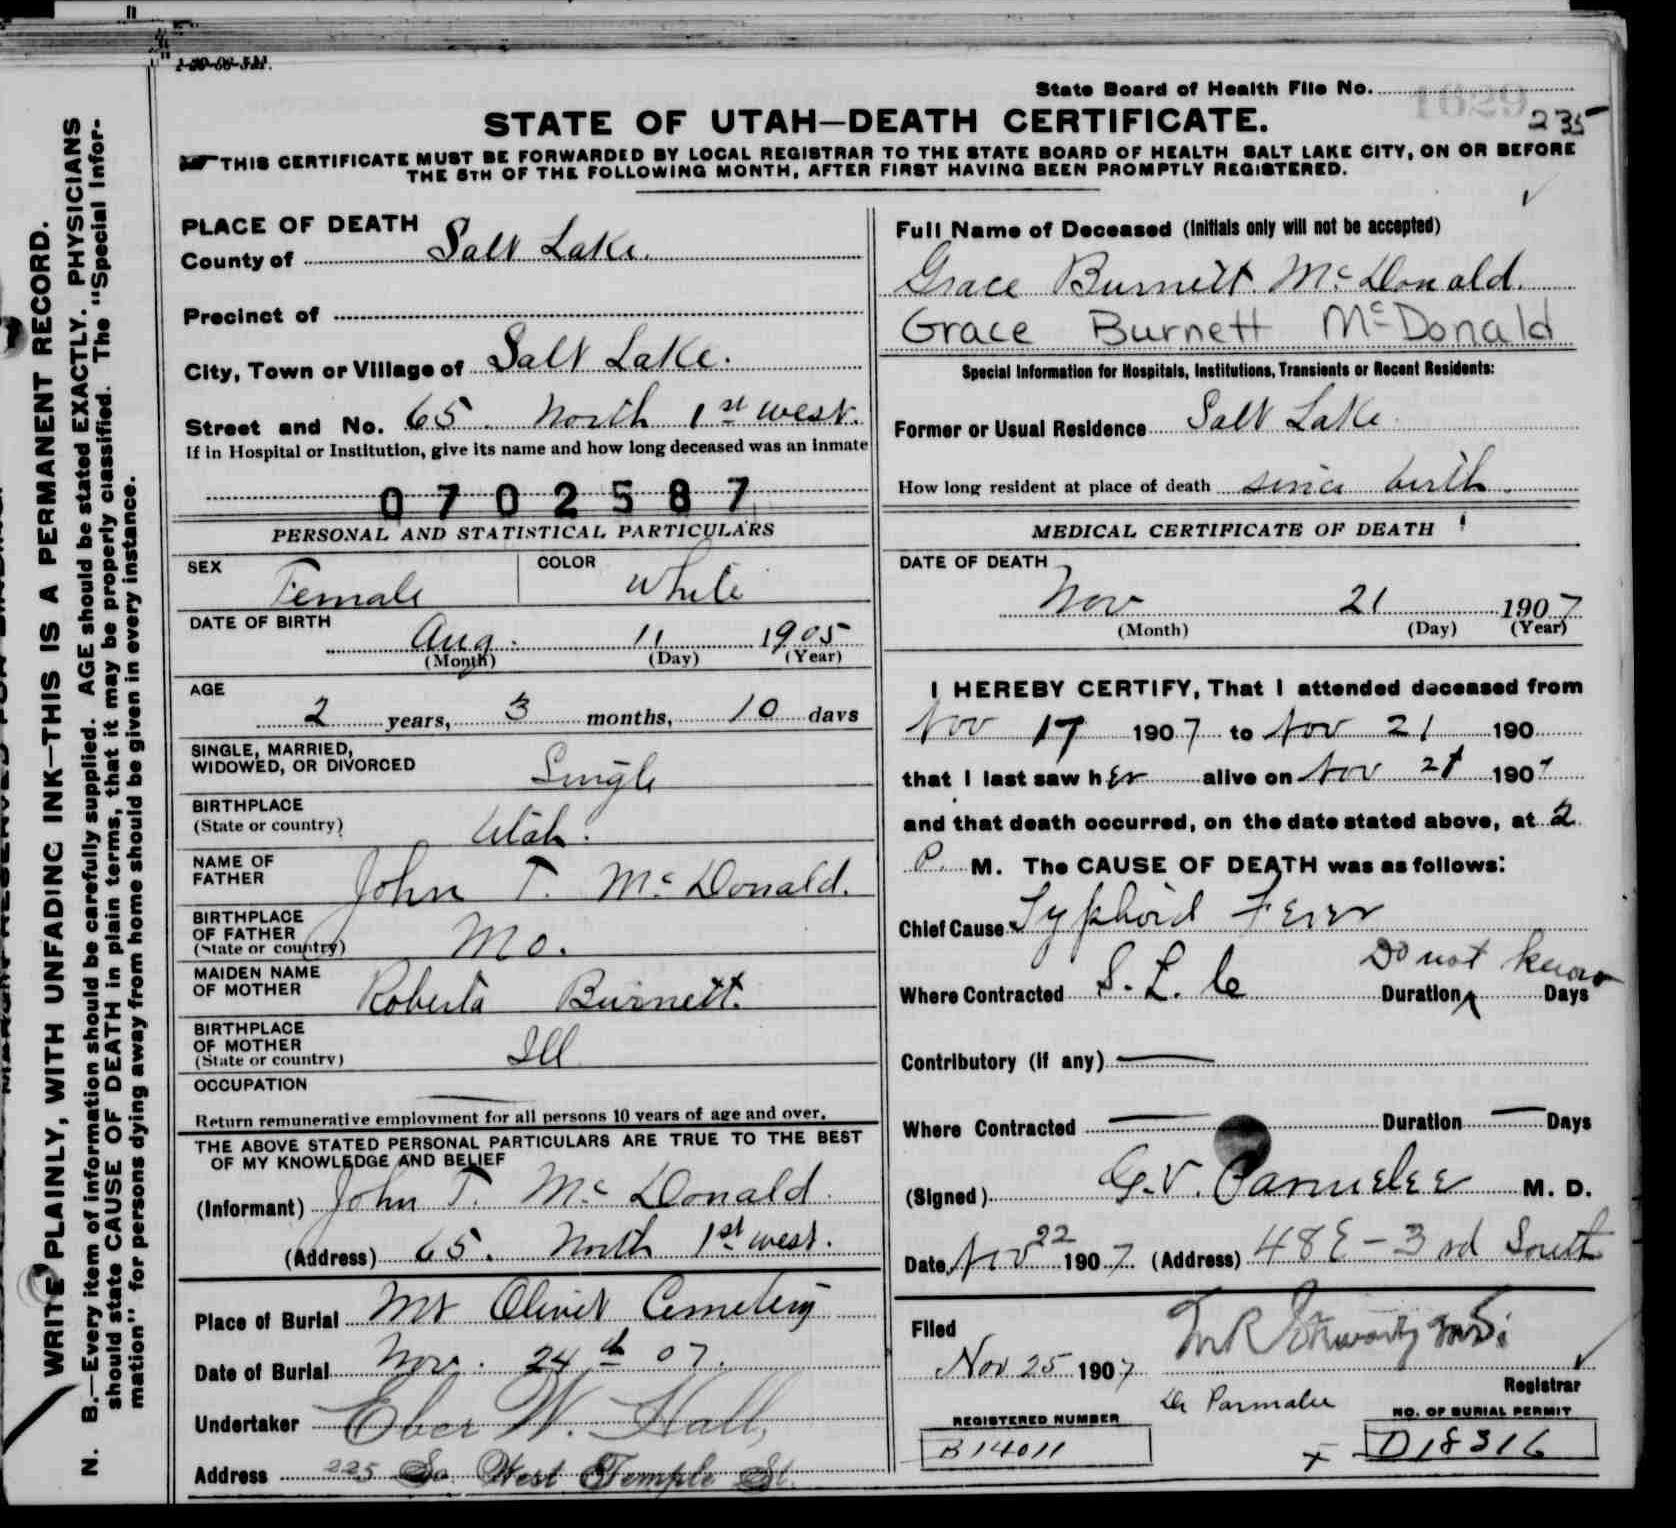 1-20-06-5M.
State Board of Health File No. 1629
235
STATE OF UTAH—DEATH CERTIFICATE.
THIS CERTIFICATE MUST BE FORWARDED BY LOCAL REGISTRAR TO THE STATE BOARD OF HEALTH SALT LAKE CITY, ON OR BEFORE
THE 5TH OF THE FOLLOWING MONTH, AFTER FIRST HAVING BEEN PROMPTLY REGISTERED.
WRITE PLAINLY, WITH UNFADING INK—THIS IS A PERMANENT RECORD.
N. B.—Every item of information should be carefully supplied. AGE should be stated EXACTLY. PHYSICIANS
should state CAUSE OF DEATH in plain terms, that it may be properly classified. The "Special Infor-
mation" for persons dying away from home should be given in every instance.
PLACE OF DEATH
County of Salt Lake.
Precinct of
City, Town or Village of Salt Lake.
Street and No. 65 North 1st west.
If in Hospital or Institution, give its name and how long deceased was an inmate
0702587
PERSONAL AND STATISTICAL PARTICULARS
SEX Female COLOR White
DATE OF BIRTH
Aug. 11 1905
(Month) (Day) (Year)
AGE
2 years, 3 months, 10 days
SINGLE, MARRIED,
WIDOWED, OR DIVORCED Single
BIRTHPLACE
(State or country) Utah.
NAME OF
FATHER John T. McDonald.
BIRTHPLACE
OF FATHER
(State or country) Mo.
MAIDEN NAME
OF MOTHER Roberta Burnett.
BIRTHPLACE
OF MOTHER
(State or country) Ill
OCCUPATION
Return remunerative employment for all persons 10 years of age and over.
THE ABOVE STATED PERSONAL PARTICULARS ARE TRUE TO THE BEST
OF MY KNOWLEDGE AND BELIEF
(Informant) John T. McDonald.
(Address) 65. North 1st west.
Place of Burial Mt Olivet Cemetery
Date of Burial Nov. 24th 07.
Undertaker Eber W. Hall,
Address 225 So. West Temple St.
Full Name of Deceased (Initials only will not be accepted)
Grace Burnett McDonald.
Grace Burnett McDonald
Special Information for Hospitals, Institutions, Transients or Recent Residents:
Former or Usual Residence Salt Lake
How long resident at place of death since birth.
MEDICAL CERTIFICATE OF DEATH
DATE OF DEATH
Nov 21 1907
(Month) (Day) (Year)
I HEREBY CERTIFY, That I attended deceased from
Nov 17 1907 to Nov 21 190
that I last saw her alive on Nov 21 1907
and that death occurred, on the date stated above, at 2
P. M. The CAUSE OF DEATH was as follows:
Chief Cause Typhoid Fever
Do not know
Where Contracted S. L. C Duration Days
Contributory (if any) —
Where Contracted — Duration — Days
(Signed) G.V. Parmelee M. D.
Date Nov 22 1907 (Address) 48 E - 3rd South
Filed
Nov 25 1907
Registrar
Dr Parmalee
REGISTERED NUMBER
B14011
NO. OF BURIAL PERMIT
x D18316